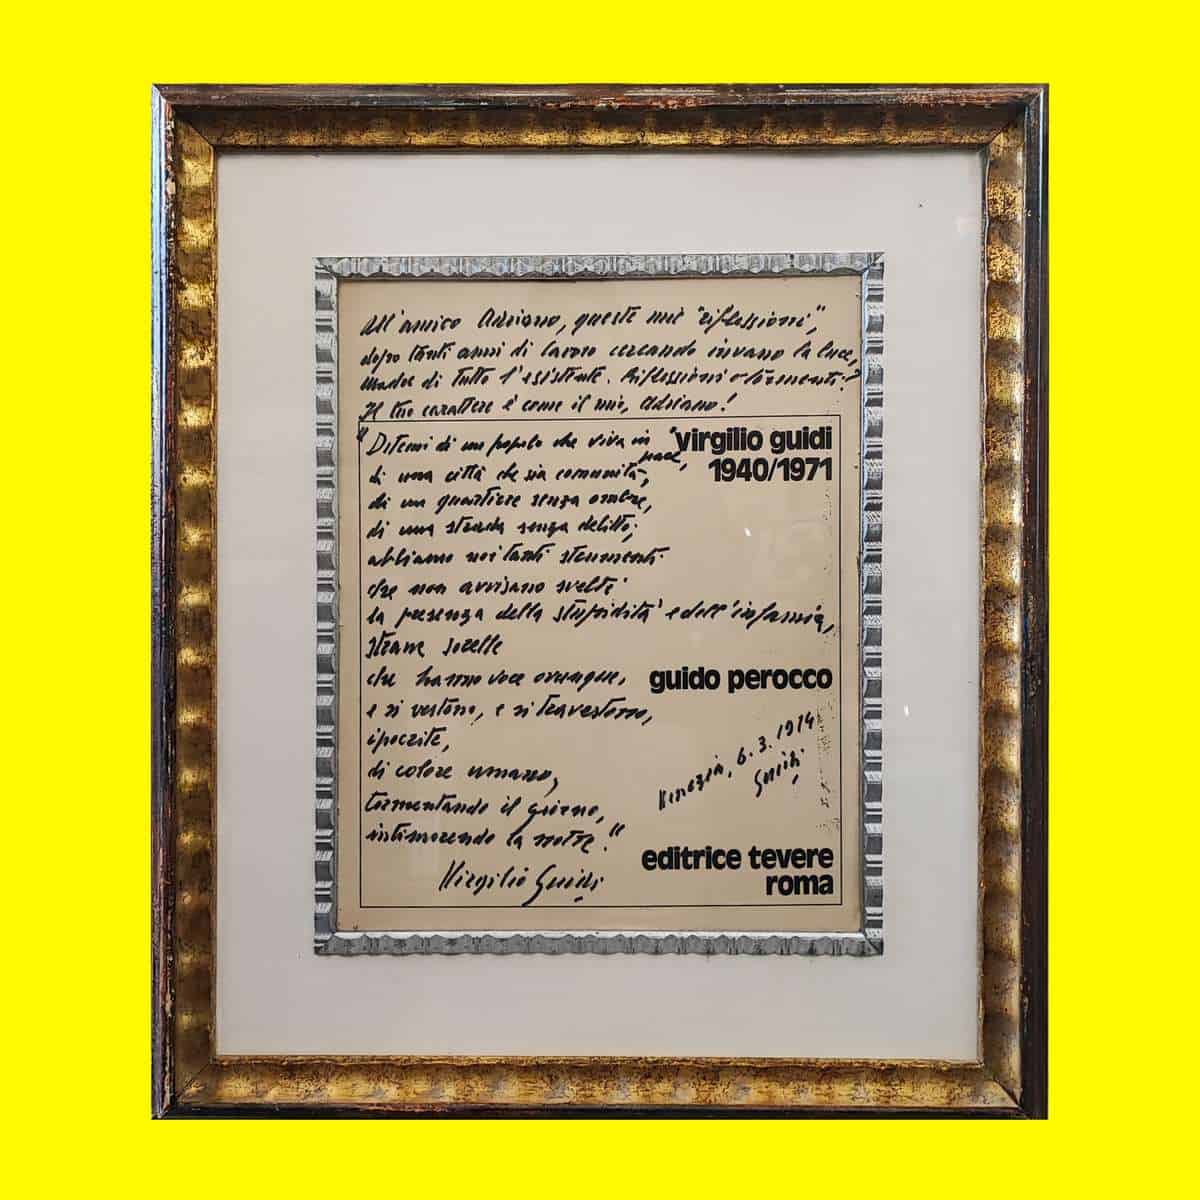 All'amico Adriano, queste mie "riflessioni",
dopo tanti anni di lavoro cercando invano la luce,
madre di tutto l'esistente. Riflessioni o tormenti?
Il tuo carattere è come il mio, Adriano!
"Ditemi di un popolo che viva in pace,
virgilio guidi
1940/1971
di una città che sia comunità,
di un quartiere senza ombre,
di una strada senza delitto;
abbiamo noi tanti strumenti
che non avvisano svelti
la presenza della stupidità e dell'infamia,
strane sorelle
che hanno voce ovunque,
guido perocco
e si vestono, e si travestono,
ipocrite,
di colore umano,
tormentando il giorno,
intimorendo la notte!"
Virgilio Guidi
Venezia, 6.3.1974
Guidi
editrice tevere
roma